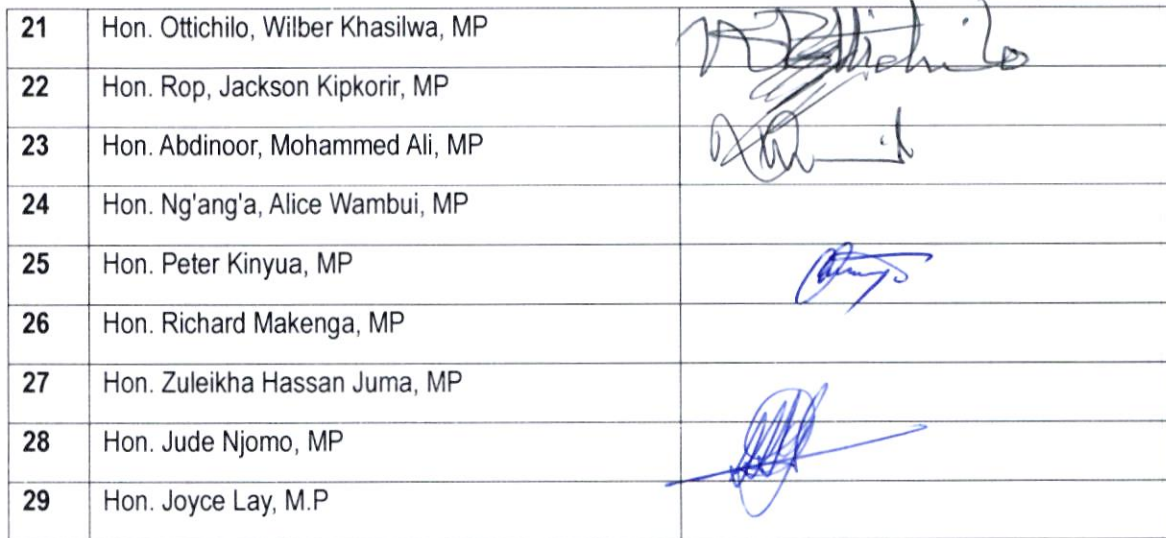 21 Hon. Ottichilo, Wilber Khasilwa, MP
22 Hon. Rop, Jackson Kipkorir, MP
23 Hon. Abdinoor, Mohammed Ali, MP
24 Hon. Ng'ang'a, Alice Wambui, MP
25 Hon. Peter Kinyua, MP
26 Hon. Richard Makenga, MP
27 Hon. Zuleikha Hassan Juma, MP
28 Hon. Jude Njomo, MP
29 Hon. Joyce Lay, M.P